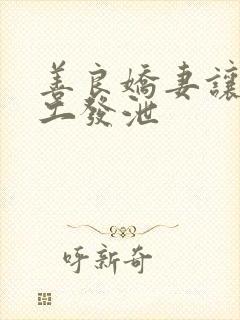 善良嬌妻讓
工發泄
呼新奇